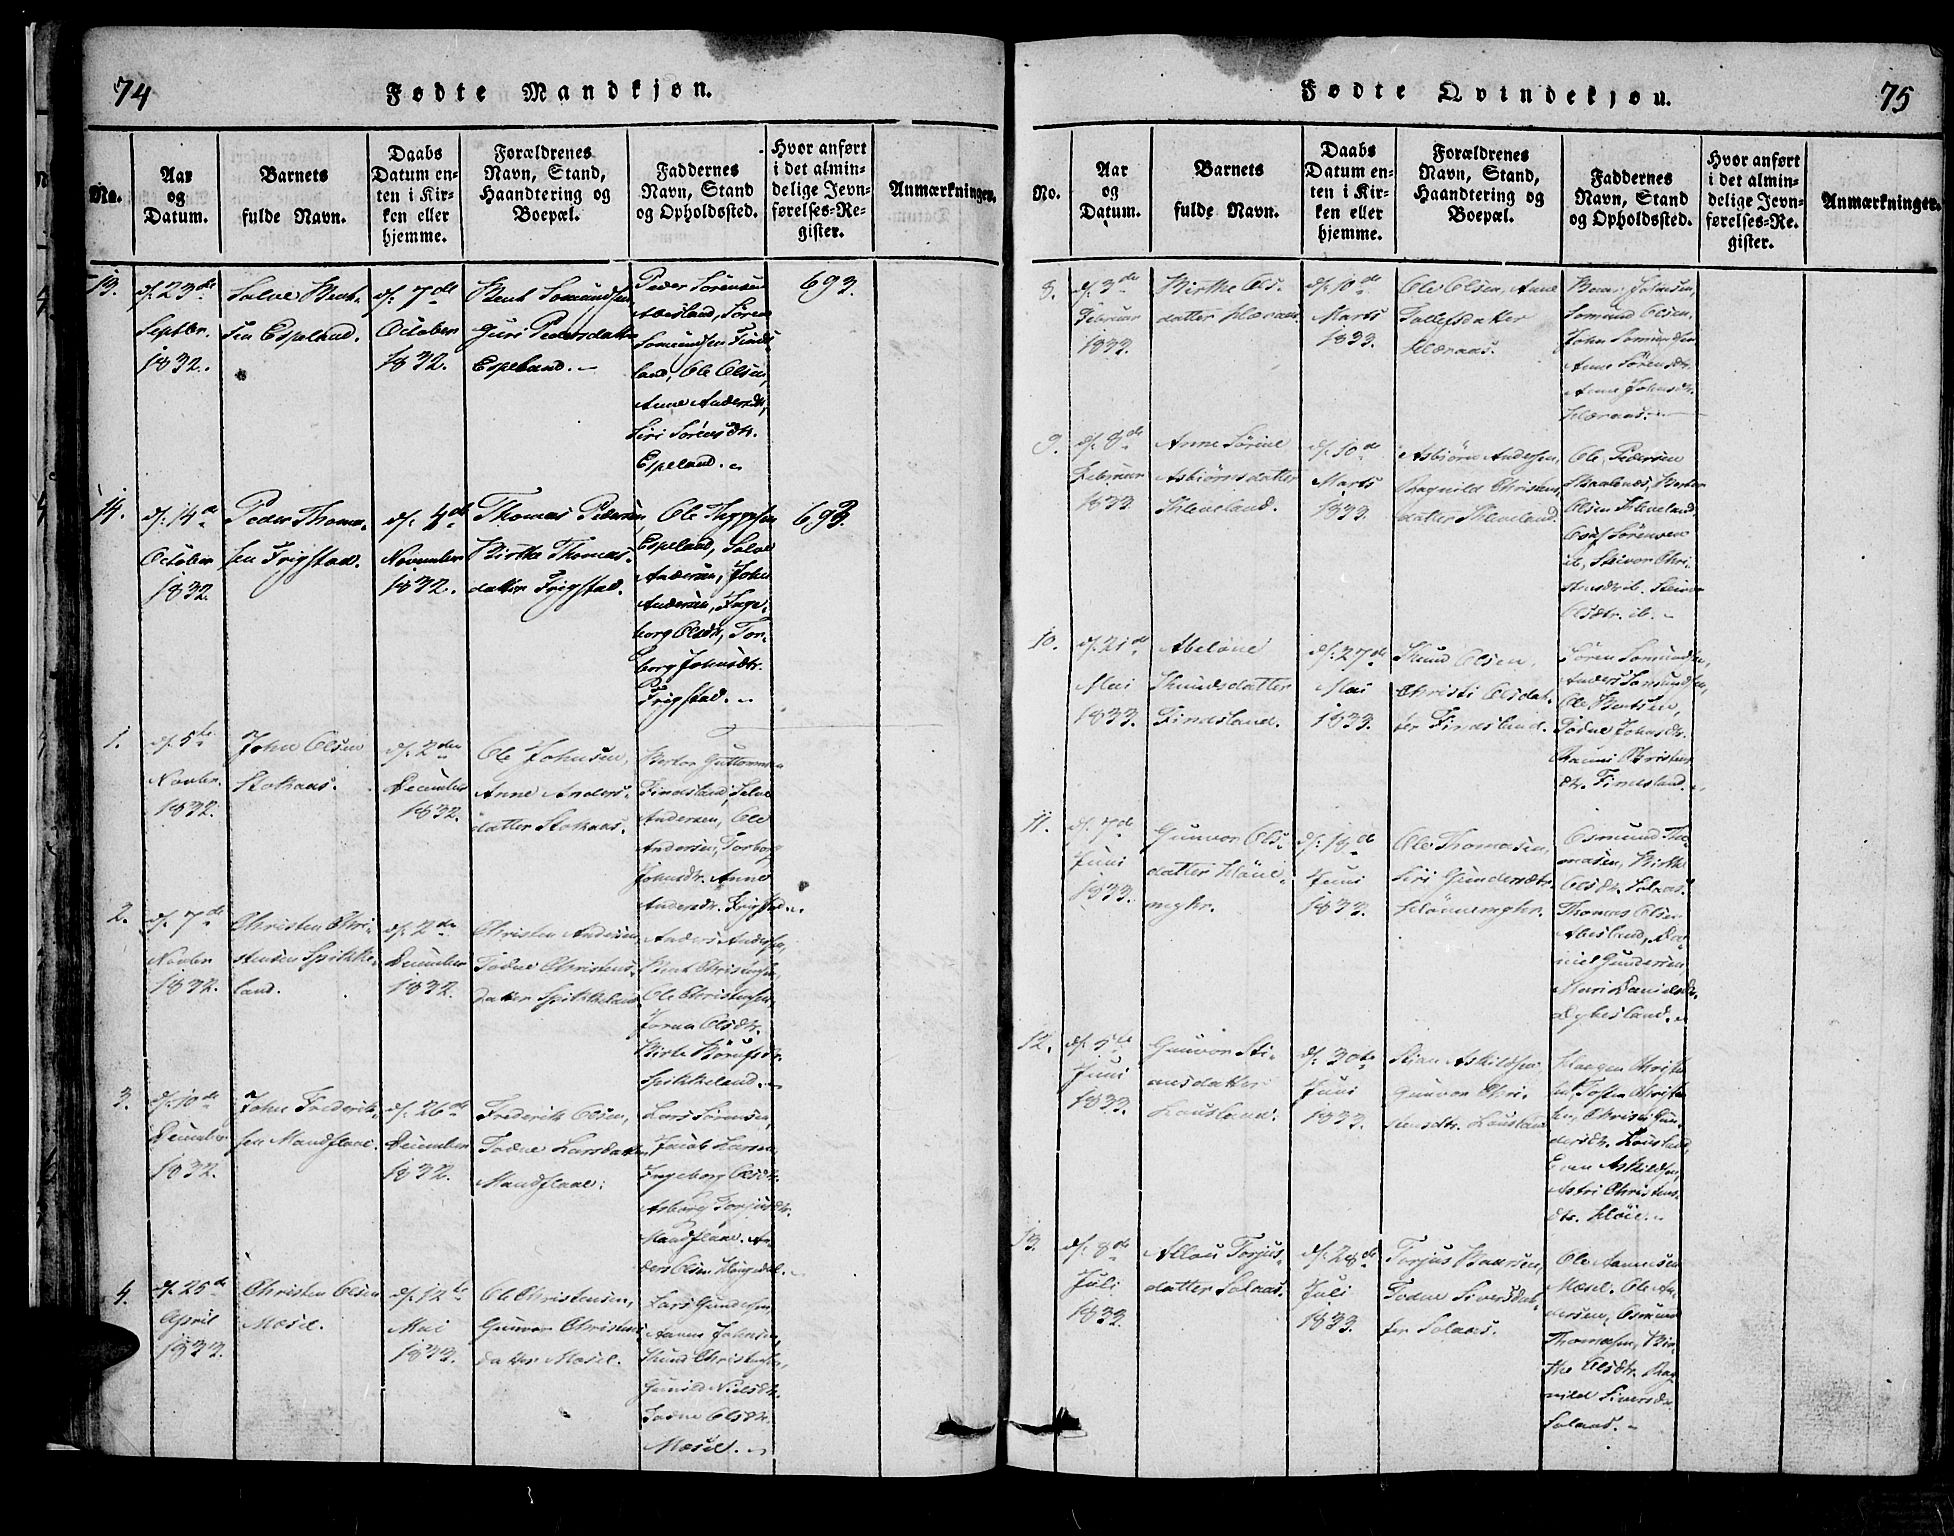 74
Fødte Mandkjøn.
No.
Aar
og
Datum.
Barnets
fulde Navn.
Daabs
Datum en-
ten i Kir-
ken eller
hjemme.
Forældrenes
Navn, Stand,
Haandtering og
Boepæl.
Faddernes
Navn, Stand
og Opholdssted.
Hvor anført
i det almin-
delige Jevn-
førelses-Re-
gister.
Anmærkninger.
13.
d. 23de
Septbr.
1832.
Salve Bent-
sen Espeland.
d. 7de
October
1832.
Bent Somundsen
Guri Pedersdatter
Espeland.
Peder Sørensen
Abesland, Søren
Somundsen Finds-
land, Ole Olsen,
Anne Andersdtr,
Siri Sørensdtr.
Espeland.
693.
14.
d. 14de
October
1832.
Peder Thoma-
sen Frigstad.
d. 4de
November
1832.
Thomas Pedersen
Birthe Thomas-
datter Frigstad.
Ole
Espeland, Salve
Andersen, John
Andersen, Inge-
borg Olsdtr, Tor-
borg Johnsdtr.
Frigstad.
693.
1.
d. 5te
Novbr.
1832.
John Olsen
Stokaas.
d. 2den
December
1832.
Ole Johnsen,
Anne Anders-
datter Stokaas.
Berthor Guttormsen
Findsland, Salve
Andersen, Ole
Andersen, Torborg
Johnsdtr. Anne
Andersdtr. Frigstad.
2.
d. 7de
Novbr
1832.
Christen Chri-
stensen Spikke-
land.
d. 2den
December
1832.
Christen Andersen,
Todne Christens-
datter Spikkeland
Anders Andersen,
Bent Christensen,
Ole Christensen
Olsdtr.
Birte
Spikkeland.
3.
d. 10de
December
1832.
John Frederik-
sen Mandflaae.
d. 26de
December
1832.
Frederik Olsen,
Todne Larsdatter
Mandflaae.
Lars Sørensen,
Jacob Larsen
Ingeborg Olsdtr.
Asborg Torjusdtr.
Mandflaae. An-
ders Olsen
4.
d. 25de
April
1833.
Christen Olsen
Mæsel.
d. 12te
Mai
1833.
Ole Christensen,
Gunvor Christens-
datter Mæsel.
Lars Gundersen
Johnsen,
Knud Christensen,
Gunild Nielsdtr.
Todne Olsdtr.
Mæsel.
75
Fødte Qvindekjøn.
No.
Aar
og
Datum.
Barnets
fulde Navn.
Daabs
Datum en-
ten i Kir-
ken eller
hjemme.
Forældrenes
Navn, Stand,
Haandtering og
Boepæl.
Faddernes
Navn, Stand
og Opholdssted.
Hvor anført
i det almin-
delige Jevn-
førelses-Re-
gister.
Anmærkninger.
8.
d. 3de
Februar
1833.
Birthe Ols-
datter Klæraas.
d. 10de
Marts
1833.
Ole Olsen, Anne
Tollefsdatter
Klæraas.
Johnsen,
Somund Olsen,
John Somundsen
Anne Sørensdtr.
Anne Johnsdtr.
Klæraas.
9.
d. 8de
Februar
1833.
Anne Sørine
Asbiørnsdatter
Kleveland.
d. 10de
Marts
1833.
Asbiørn Andersen,
Ragnild Christens-
datter Kleveland.
Ole Pedersen
Olsen Kleveland
Sørensen
ib, Steivor Chri-
stensdtr ib. Steivor
Olsdtr. ib.
10.
d. 21de
Mai
1833.
Abelone
Knudsdatter
Findsland.
d. 27de
Mai
1833.
Knud Olsen,
Christi Olsdat-
ter Findsland.
Søren Somundsen,
Anders Somundsen,
Ole Bentsen,
Todne Johnsdtr.
Christens-
dtr. Findsland.
11.
d. 7de
Juni
1833.
Gunvor Ols-
datter
d. 19de
Juni
1833.
Ole Thomasen,
Siri Gundersdtr.
Osmund Tho-
masen, Birthe
Olsdtr. Solaas.
Thomas Olsen
Abesland, Da-
niel Gundersen
Mari Danielsdtr.
Dybesland.
12.
d. 5te
Juni
1833.
Gunvor Sti-
ansdatter
Lausland.
d. 30te
Juni
1833.
Stian Askildsen
Gunvor Chri-
stensdtr. Lausland
Haagen Christen-
sen, Tosten Christen-
sen, Christi Gun-
dersdtr. Lausland,
Even Askildsen,
Astri Christens-
dtr. Kløie.
13.
d. 8de
Juli
1833.
Torjus-
datter Solaas.
d. 28de
Juli
1833.
Torjus Baarsen,
Todne Siversdat-
ter Solaas.
Ole Aanensen
Mæsel. Ole An-
dersen, Osmund
Thomasen, Bir-
the Olsdtr. Rag-
nild Siversdtr
Solaas.